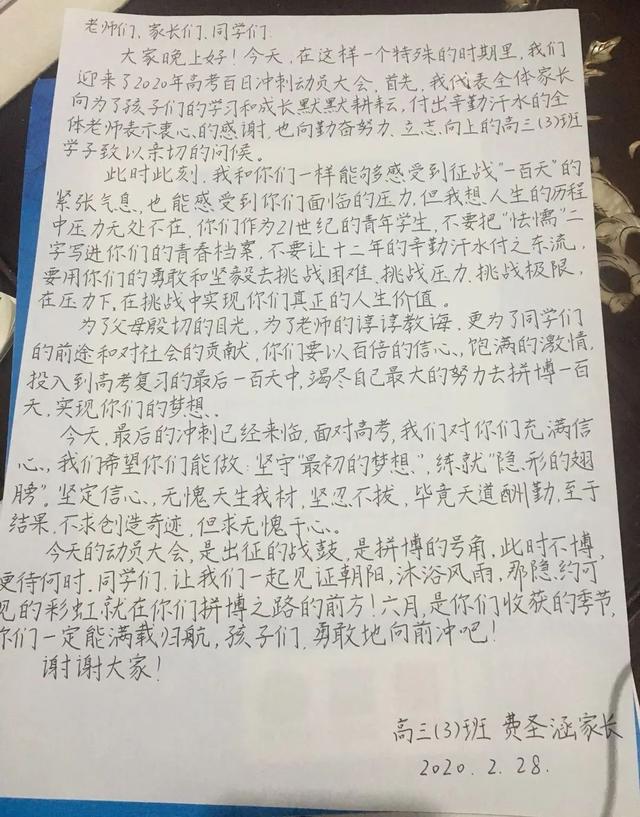 老师们、家长们、同学们:
大家晚上好!今天,在这样一个特殊的时期里,我们
迎来了2020年高考百日冲刺动员大会,首先,我代表全体家长
向为了孩子们的学习和成长默默耕耘,付出辛勤汗水的全
体老师表示衷心的感谢,也向勤奋努力、立志向上的高三(3)班
学子致以亲切的问候。
此时此刻,我和你们一样能够感受到征战“一百天”的
紧张气息,也能感受到你们面临的压力,但我想,人生的历程
中压力无处不在,你们作为21世纪的青年学生,不要把“怯懦”二
字写进你们的青春档案,不要让十二年的辛勤汗水付之东流,
要用你们的勇敢和坚毅去挑战困难、挑战压力、挑战极限,
在压力下,在挑战中实现你们真正的人生价值。
为了父母殷切的目光,为了老师的谆谆教诲,更为了同学们
的前途和对社会的贡献,你们要以百倍的信心,饱满的激情,
投入到高考复习的最后一百天中,竭尽自己最大的努力去拼博一百
天,实现你们的梦想.
今天,最后的冲刺已经来临,面对高考,我们对你们充满信
心,我们希望你们能做:坚守“最初的梦想”,练就“隐形的翅
膀”。坚定信心,无愧天生我材,坚忍不拔,毕竟天道酬勤,至于
结果,不求创造奇迹,但求无愧于心。
今天的动员大会,是出征的战鼓,是拼博的号角,此时不博,
更待何时.同学们,让我们一起见证朝阳,沐浴风雨,那隐约可
见的彩虹就在你们拼博之路的前方!六月,是你们收获的季节,
你们一定能满载归航,孩子们,勇敢地向前冲吧!
谢谢大家!
高三(3)班 费圣涵家长
2020.2.28.